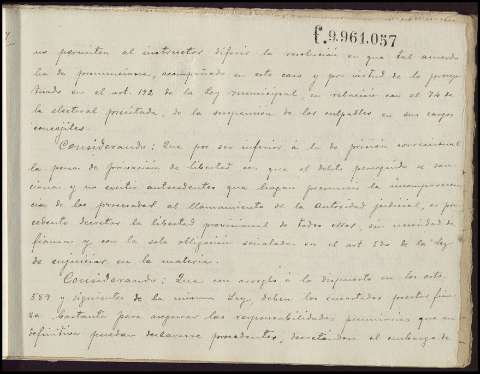 f. 9.961.057
no permiten al instructor diferir la resolución en que tal acuerdo
ha de pronunciarse, acompañada en este caso y por virtud de lo precep
tuado en el art. 192 de la ley municipal, en relación con el 74 de
la electoral precitada, de la suspensión de los culpables en sus cargos
concejiles.
Considerando: Que por ser inferior á la de prisión correccional
la pena de privación de libertad con que el delito perseguido se san
ciona y no existir antecedentes que hagan presumir la incomparecen
cia de los procesados al llamamiento de la Autoridad judicial, es pro
cedente decretar la libertad provisional de todos ellos, sin necesidad de
fianza y con la sola obligación señalada en el art. 530 de la ley
de enjuiciar en la materia.
Considerando: Que con arreglo á lo dispuesto en los arts.
589 y siguientes de la misma Ley, deben los encartados prestar fian
za bastante para asegurar las responsabilidades pecuniarias que en
definitiva puedan declararse procedentes, decretándose el embargo de